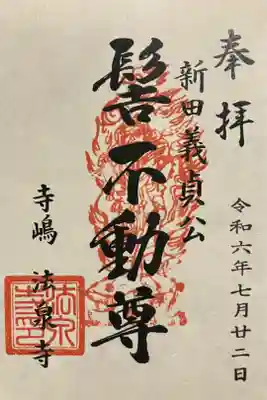 奉拝
令和六年七月廿二日
新田義貞公
髻不動尊
寺嶋 法泉寺